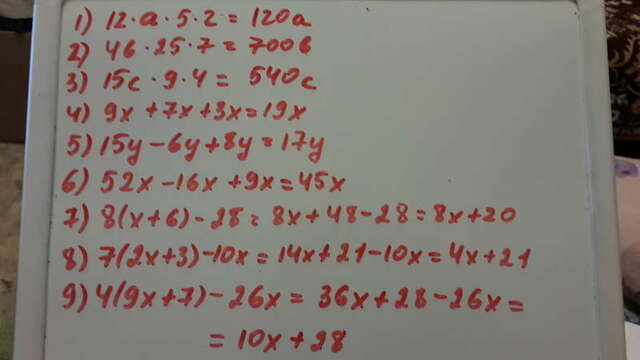 1) 12·a·5·2 = 120a
2) 4в·25·7 = 700в
3) 15c·9·4 = 540c
4) 9x+7x+3x=19x
5) 15y-6y+8y=17y
6) 52x-16x+9x=45x
7) 8(x+6)-28=8x+48-28=8x+20
8) 7(2x+3)-10x=14x+21-10x=4x+21
9) 4(9x+7)-26x=36x+28-26x=
=10x+28